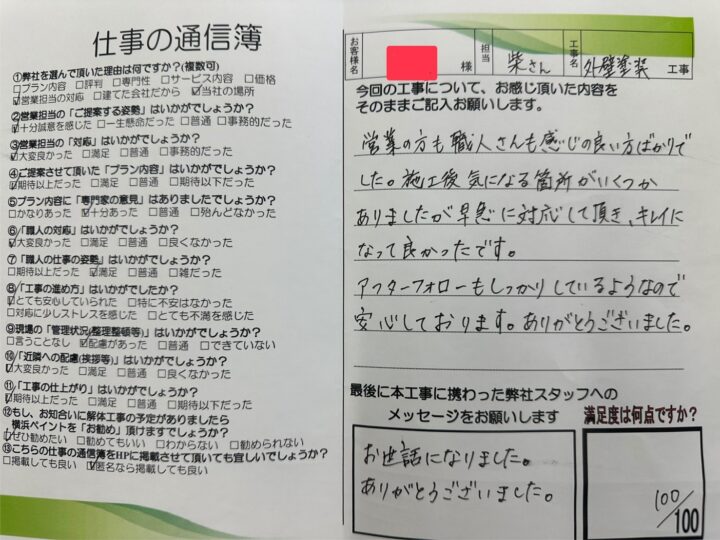 仕事の通信簿
①弊社を選んで頂いた理由は何ですか?(複数可)
□プラン内容 □評判 □専門性 □サービス内容 □価格
☑営業担当の対応 □建てた会社だから ☑当社の場所
②営業担当の「ご提案する姿勢」はいかがでしょうか?
☑十分誠意を感じた □一生懸命だった □普通 □事務的だった
③営業担当の「対応」はいかがでしょうか?
☑大変良かった □満足 □普通 □事務的だった
④ご提案させて頂いた「プラン内容」はいかがでしょうか?
☑期待以上だった □満足 □普通 □期待以下だった
⑤プラン内容に「専門家の意見」はありましたでしょうか?
□かなりあった ☑十分あった □普通 □殆んどなかった
⑥「職人の対応」はいかがでしょうか?
☑大変良かった □満足 □普通 □良くなかった
⑦「職人の仕事の姿勢」はいかがでしょうか?
□期待以上だった ☑満足 □普通 □雑だった
⑧「工事の進め方」はいかがでしたか?
☑とても安心していられた □特に不安はなかった
□対応に少しストレスを感じた □とても不満を感じた
⑨現場の「管理状況(整理整頓等)」はいかがでしょうか?
□言うことなし ☑配慮があった □普通 □できていない
⑩「近隣への配慮(挨拶等)」はいかがでしょうか?
☑大変良かった □満足 □普通 □良くなかった
⑪「工事の仕上がり」はいかがでしょうか?
☑期待以上だった □満足 □普通 □期待以下だった
⑫もし、お知合いに解体工事の予定がありましたら
横浜ペイントを「お勧め」頂けますでしょうか?
☑ぜひ勧めたい □勧めてもいい □わからない □勧められない
⑬こちらの仕事の通信簿をHPに掲載させて頂いても宜しいでしょうか?
□掲載しても良い ☑匿名なら掲載しても良い
お客様名 様 担当 柴さん 工事名 外壁塗装 工事
今回の工事について、お感じ頂いた内容を
そのままご記入お願いします。
営業の方も職人さんも感じの良い方ばかりで
した。施工後気になる箇所がいくつか
ありましたが早急に対応して頂き、キレイに
なって良かったです。
アフターフォローもしっかりしているようなので
安心しております。ありがとうございました。
最後に本工事に携わった弊社スタッフへの
メッセージをお願いします
満足度は何点ですか?
お世話になりました。
ありがとうございました。
100/100